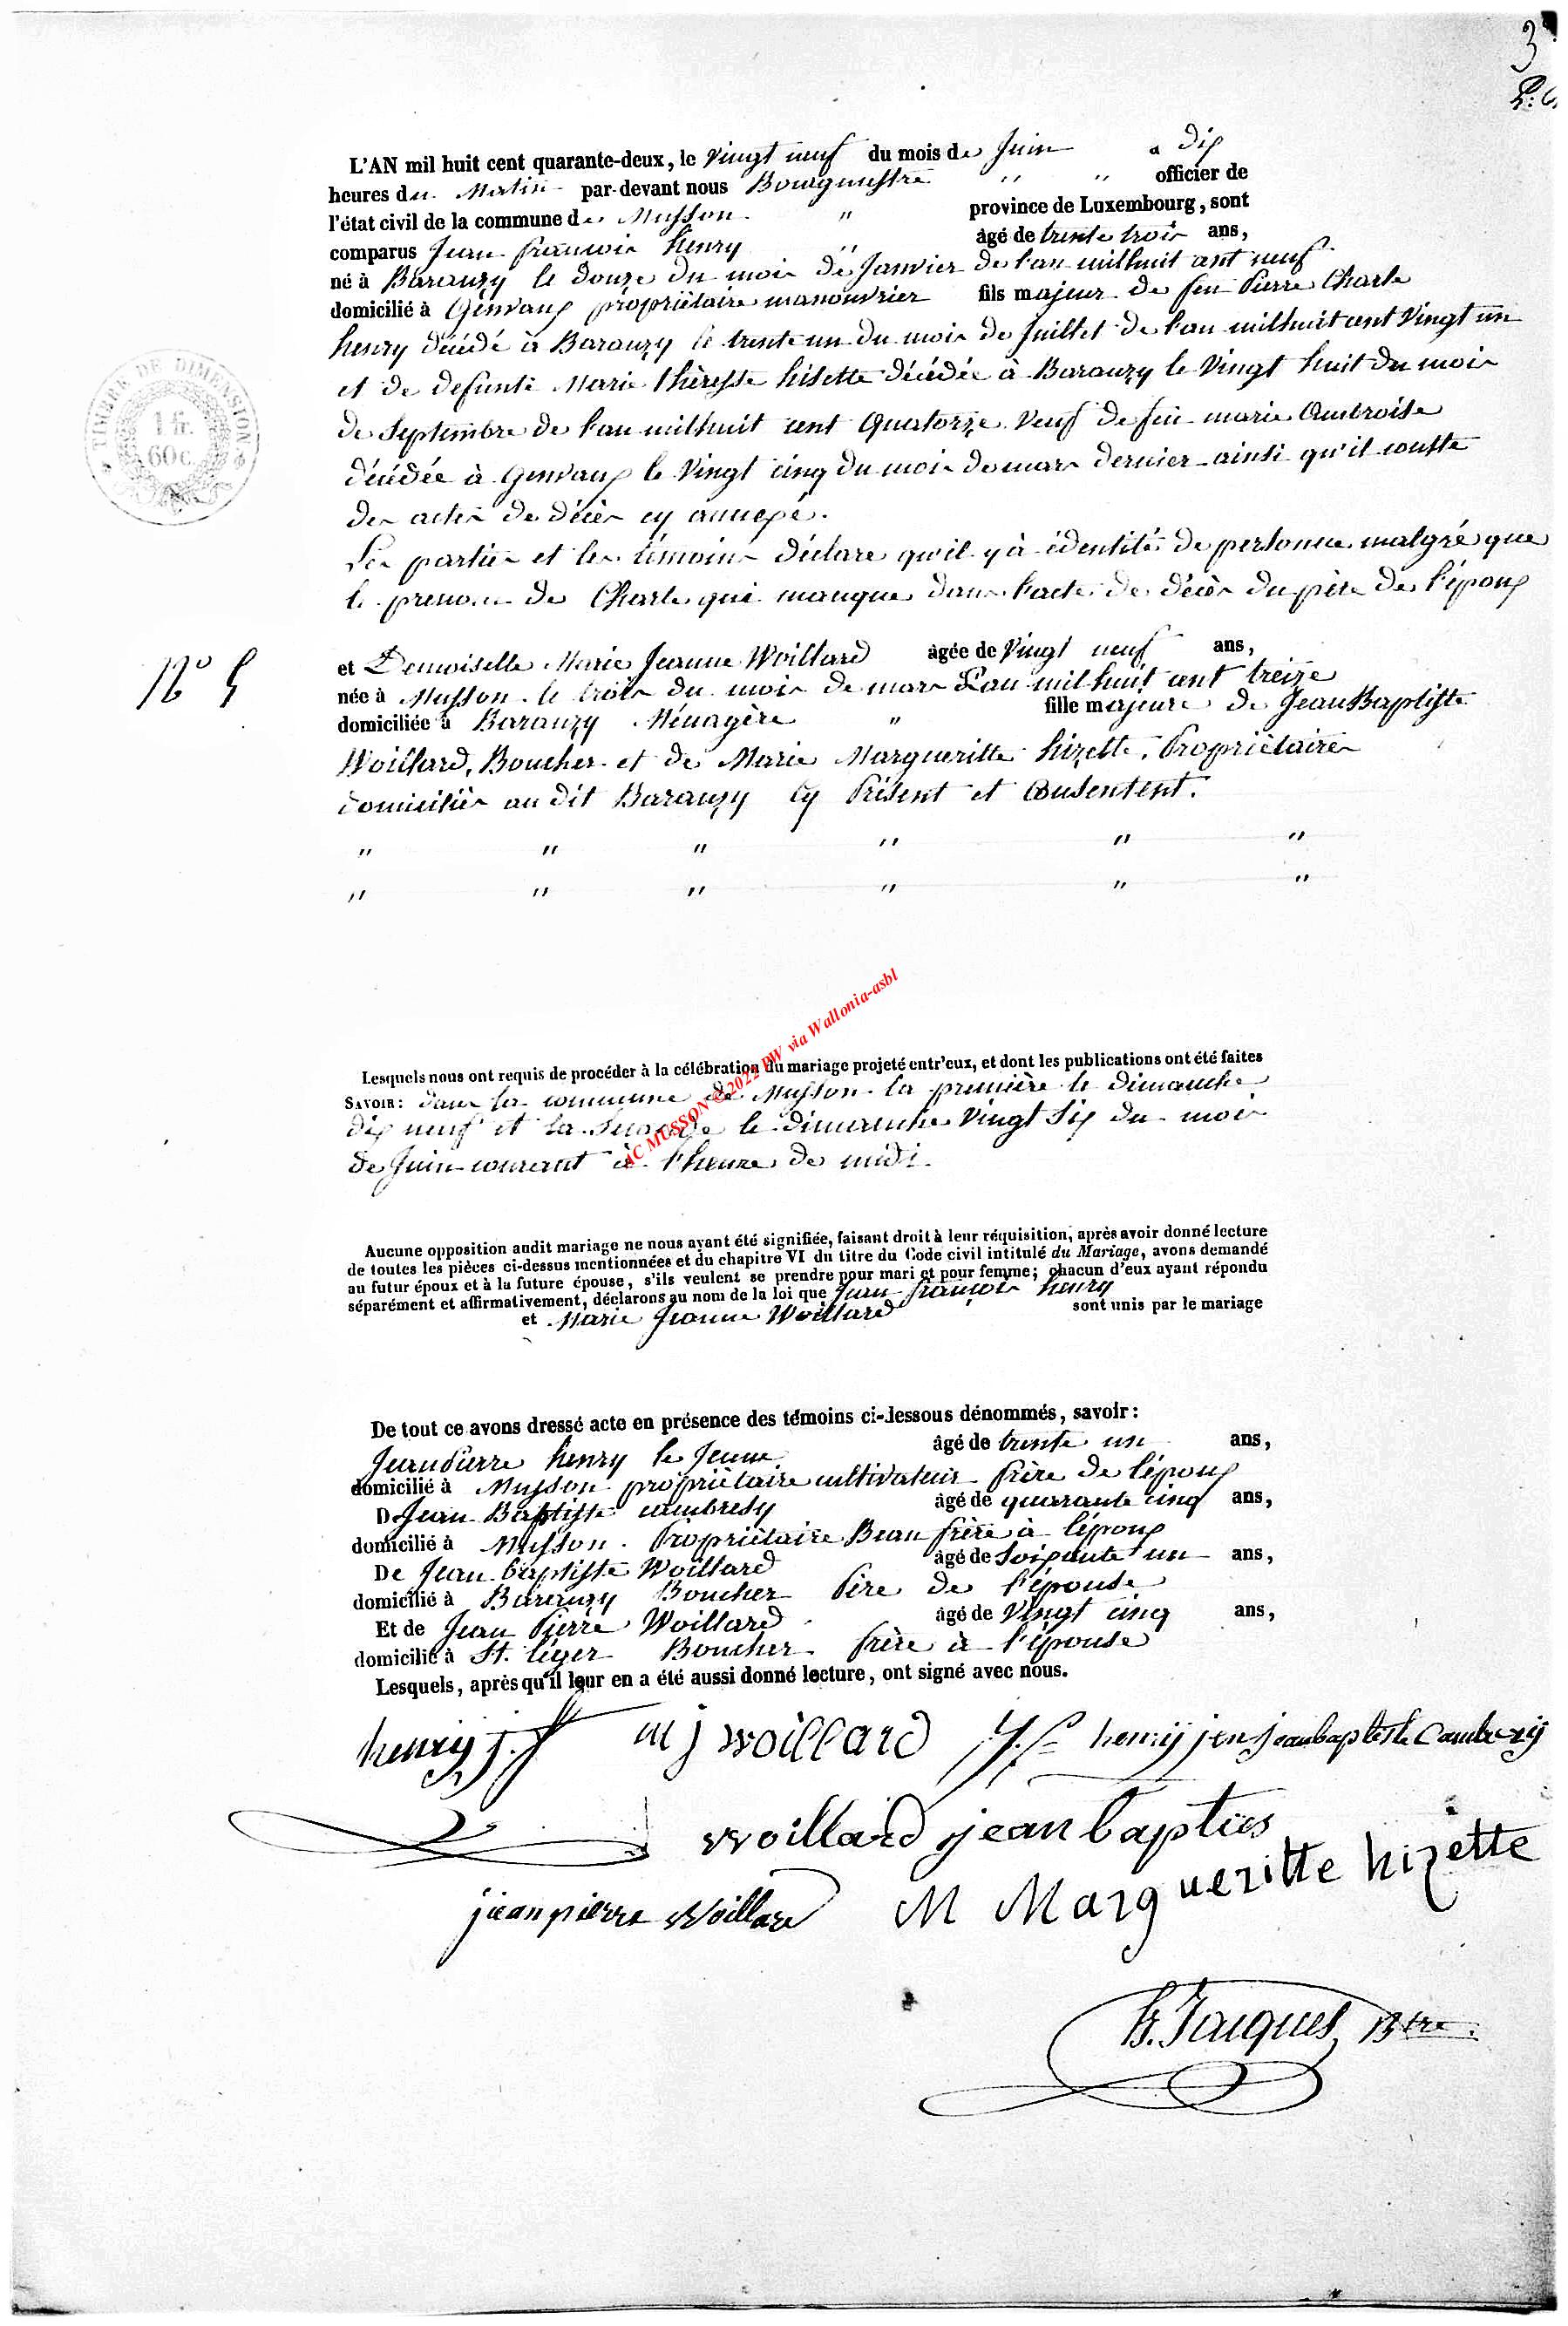 3
L'AN mil huit cent quarante-deux, le Vingt neuf du mois de Juin a dix
heures du Matin par-devant nous Bourguestre " " officier de
l'état civil de la commune de Musson " province de Luxembourg, sont
comparus Jean francois henry " âgé de trente trois ans,
né à Baranzy le douze du mois de Janvier de l'an mil huit cent neuf
domicilié à Genvaux propriètaire manouvrier fils majeur de feu Pierre Charle
henry décédé à Baranzy le trente un du mois de Juillet de l'an mil huit cent Vingt un
et de defunte Marie thèresse hisette décédée à Baranzy le Vingt huit du mois
de Septembre de l'an mil huit cent Quatorze Veuf de feu marie Ambroise
décédée à Genvaux le Vingt cinq du mois de mars dernier ainsi qu'il conste
des actes de décès cy annexé.
Les parties et les témoins déclare qu'il y à identité de personne malgré que
le prenom de Charle qui manque dans l'acte de décès du père de l'époux
TIMBRE DE DIMENSION
1 fr.
60 c.
No 5
et Demoiselle Marie Jeanne Woillard âgée de Vingt neuf ans,
née à Musson le trois du mois de mars L'an mil huit cent treize
domiciliée à Baranzy Ménagère " fille majeure de Jean Baptiste
Woillard, Boucher et de Marie Margueritte hizette, Propriètaires
domiciliés au dit Baranzy Cy Présent et Consentent.
" " " " " "
" " " " " "
Lesquels nous ont requis de procéder à la célébration du mariage projeté entr'eux, et dont les publications ont été faites
SAVOIR: dans la commune de Musson la première le dimanche
dix neuf et la seconde le dimanche Vingt Six du mois
de Juin courant à l'heure de midi.
AC MUSSON © 2022 PW via Wallonia-asbl
Aucune opposition audit mariage ne nous ayant été signifiée, faisant droit à leur réquisition, après avoir donné lecture
de toutes les pièces ci-dessus mentionnées et du chapitre VI du titre du Code civil intitulé du Mariage, avons demandé
au futur époux et à la future épouse, s'ils veulent se prendre pour mari et pour femme; chacun d'eux ayant répondu
séparément et affirmativement, déclarons au nom de la loi que Jean françois henry
et Marie Jeanne Woillard sont unis par le mariage
De tout ce avons dressé acte en présence des témoins ci-dessous dénommés, savoir:
Jean Pierre henry le Jeune âgé de trente un ans,
domicilié à Musson propriètaire cultivateur frère de l'époux
D Jean Baptiste cambresy âgé de quarante cinq ans,
domicilié à Musson. Propriètaire Beau frère à l'époux
De Jean baptiste Woillard âgé de Soixante un ans,
domicilié à Baranzy Boucher Père de l'épouse
Et de Jean Pierre Woillard âgé de Vingt cinq ans,
domicilié à St. léger Boucher frère à l'épouse
Lesquels, après qu'il leur en a été aussi donné lecture, ont signé avec nous.
henry j. f m j woillard J. P. henrij jen jeanbaptiste Cambrezij
woillard jean bapties
jean pierre Woillard M Margueritte hizette
h. Jacques Bstre.